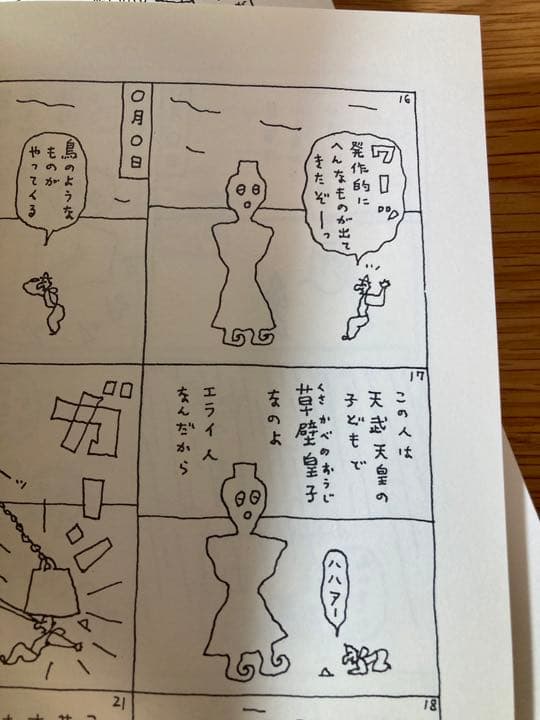 16
ワーッ
発作的に
へんなものが出て
きたぞーっ
〇月〇日
鳥のような
ものが
やってくる
17
この人は
天武天皇の
子どもで
くさかべのおうじ
草壁皇子
なのよ
エライ人
なんだから
ハハアー
ガ
ー
18
21